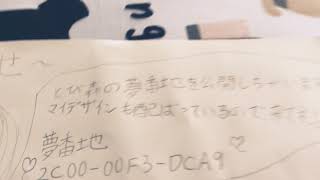 せ～
とび森の夢番地を公開しちゃいます
マイデザインも配ばっている
夢番地
2C00-00F3-DCA9